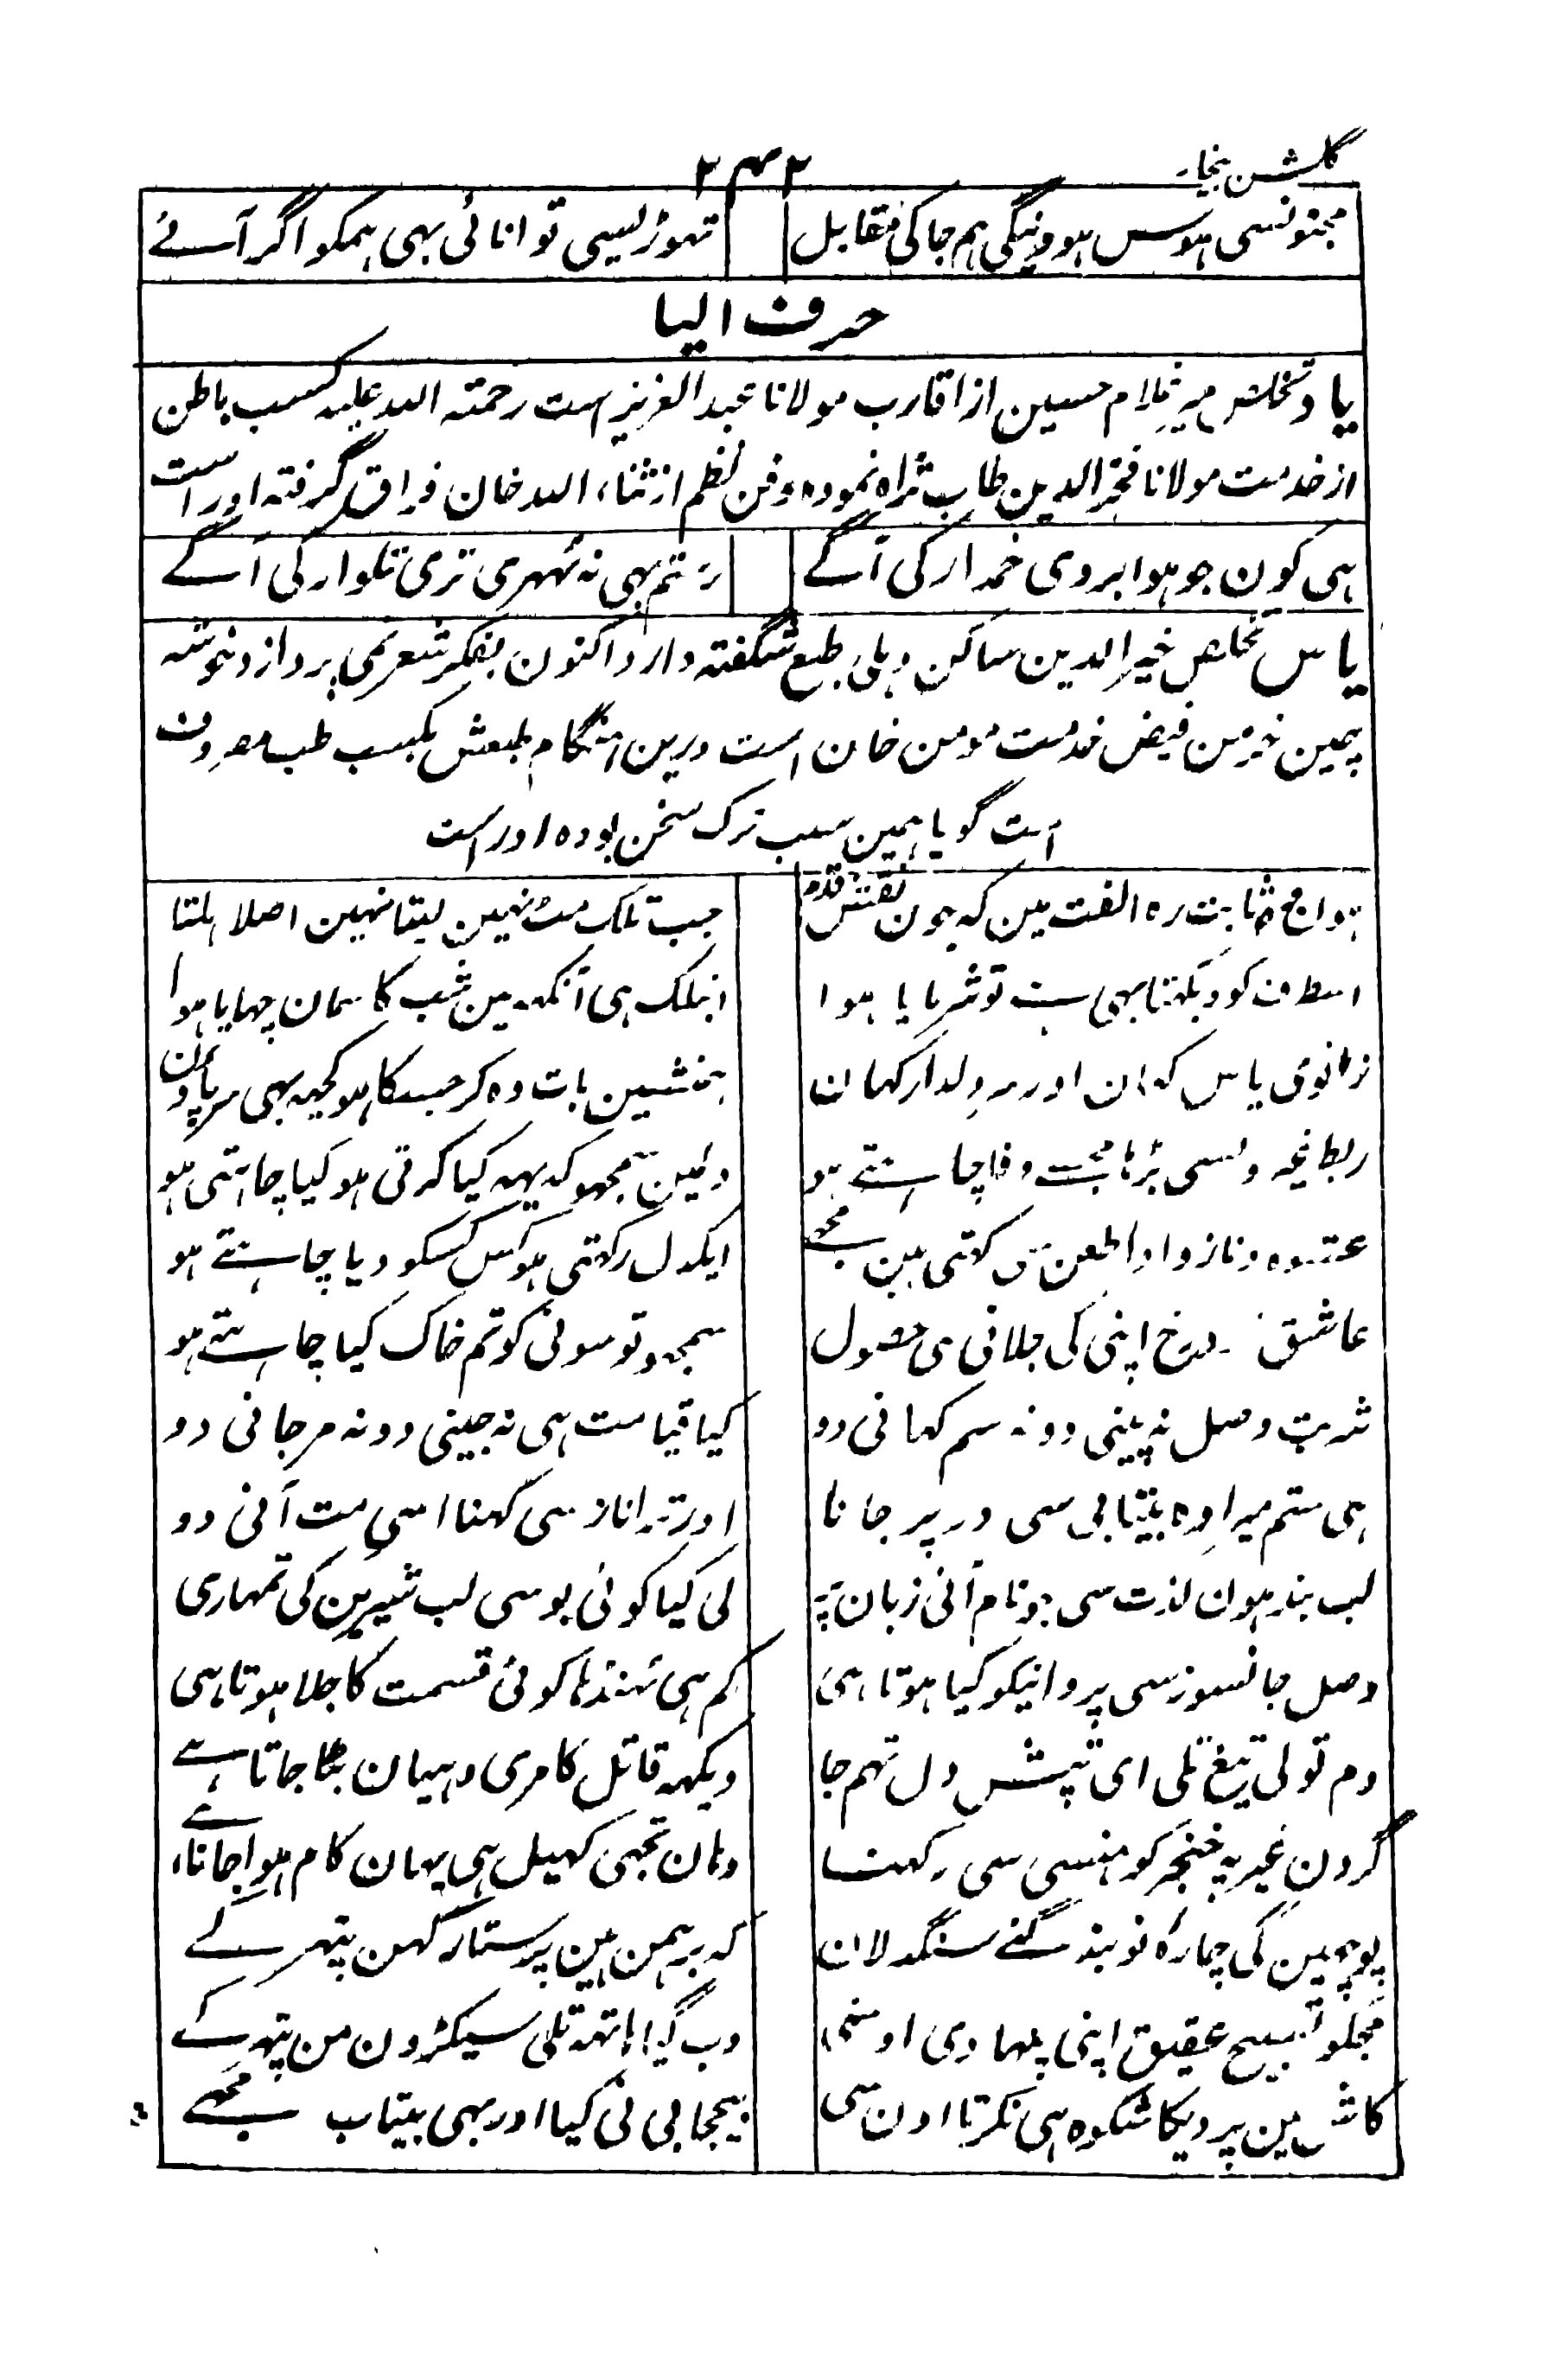 گلشن بیخار
۲۴۲
مجنونسی ہوس ہووینگی ہم جاکی مقابل تہوڑیسی توانائی بہی ہمکو اگر آئے
حرف الیا
یاد تخلص میر غلام حسین از اقارب مولانا عبد العزیز است رحمتہ اللہ علیہ کسب باطن
از خدمت مولانا فخر الدین طاب ثراہ نمودہ و فن نظم از ثناء اللہ خان فراق گرفتہ اوراست
ہی کون جو ہو ابروی خمدار کی آگے رستم بہی نہ ٹہری تری تلوار کی آگے
یاس تخلص خیر الدین ساکن دہلی طبع شگفتہ دارد اکنون بفکر شعر نمی پردازد خوشہ
چین خرمن فیض خدمت مومن خان است درین ہنگام طبعش بکسب طب مصروف
است گویا ہمین سبب ترک سخن بودہ اوراست
ہوا مین ثابت رہ الفت مین کہ جون نقش قدم جب تلک مٹ نہین لیتا نہین اصلا ہلتا
اسطرف کو دیکہتا بہی ہے تو شرمایا ہوا ابتلک ہی آنکہہ مین شب کا سمان چہایا ہوا
زانوی یاس کہان اور سر دلدار کہان ہمنشین بات وہ کر جسکا ہو کچہہ بہی سر پاون
ربط غیر ونسی بڑہا مجسے وفا چاہتے ہو دلمین سمجہو کہ یہہ کیا کرتی ہو کیا چاہتی ہو
عشوہ و ناز و ادا طعن سی کہتی ہین مجہے ایکدل رکہتی ہو کس کسکو دیا چاہتے ہو
عاشق رخ اپنی کی جلانی سی حصول سمجہو تو سونی کو تم خاک کیا چاہتے ہو
شربت وصل نہ پینی دو نہ سم کہانی دو کیا قیامت ہی نہ جینی دو نہ مرجانی دو
ہی ستم میرا وہ بیتابی سی در پر جانا اور ترا ناز سی کہنا اسی مت آنی دو
لب بند ہوان لذت سی جو نام آئی زبان پہ لی کیا کوئی بوسی لب شیرین کی تمہاری
وصل جانسوز سی پروانیکو کیا ہوتا ہی کم ہی ٹہنڈہا کوئی قسمت کا جلا ہوتا ہی
دم تو لی تیغ تلی ای تپش دل تہم جا دیکہہ قاتل کا مری دہیان بٹا جاتا ہے
گردن غیر پہ خنجر کو ہنسی سی رکہنا وہان تجہی کہیل ہی یہان کام ہوا جاتا ہے
پوجہین کی ہمارہ نو بند گئے سنگدلان کہ برہمن ہین پرستار کہن پتہر کے
مجکو تسبیح عقیق اپنی پنہا دی اوسنی دب گیا ہاتہہ تلی سیکڑون من پتہر کے
کاش مین پردیکا شکوہ ہی نکرتا اون سی بیحجابی نی کیا اور بہی بیتاب مجہے